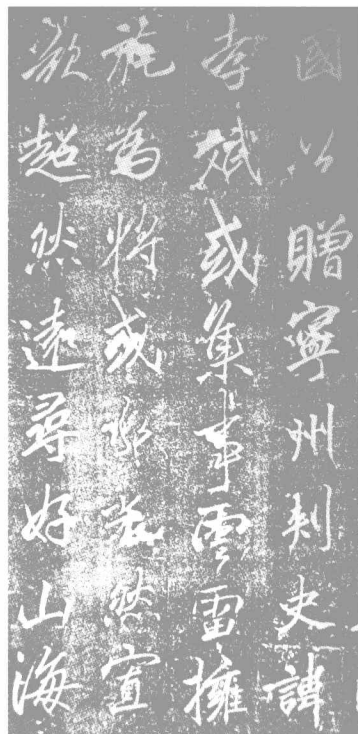 國公贈寧州刺史諱
孝斌或集事雲雷擁
旄為將或
超然遠尋好山海